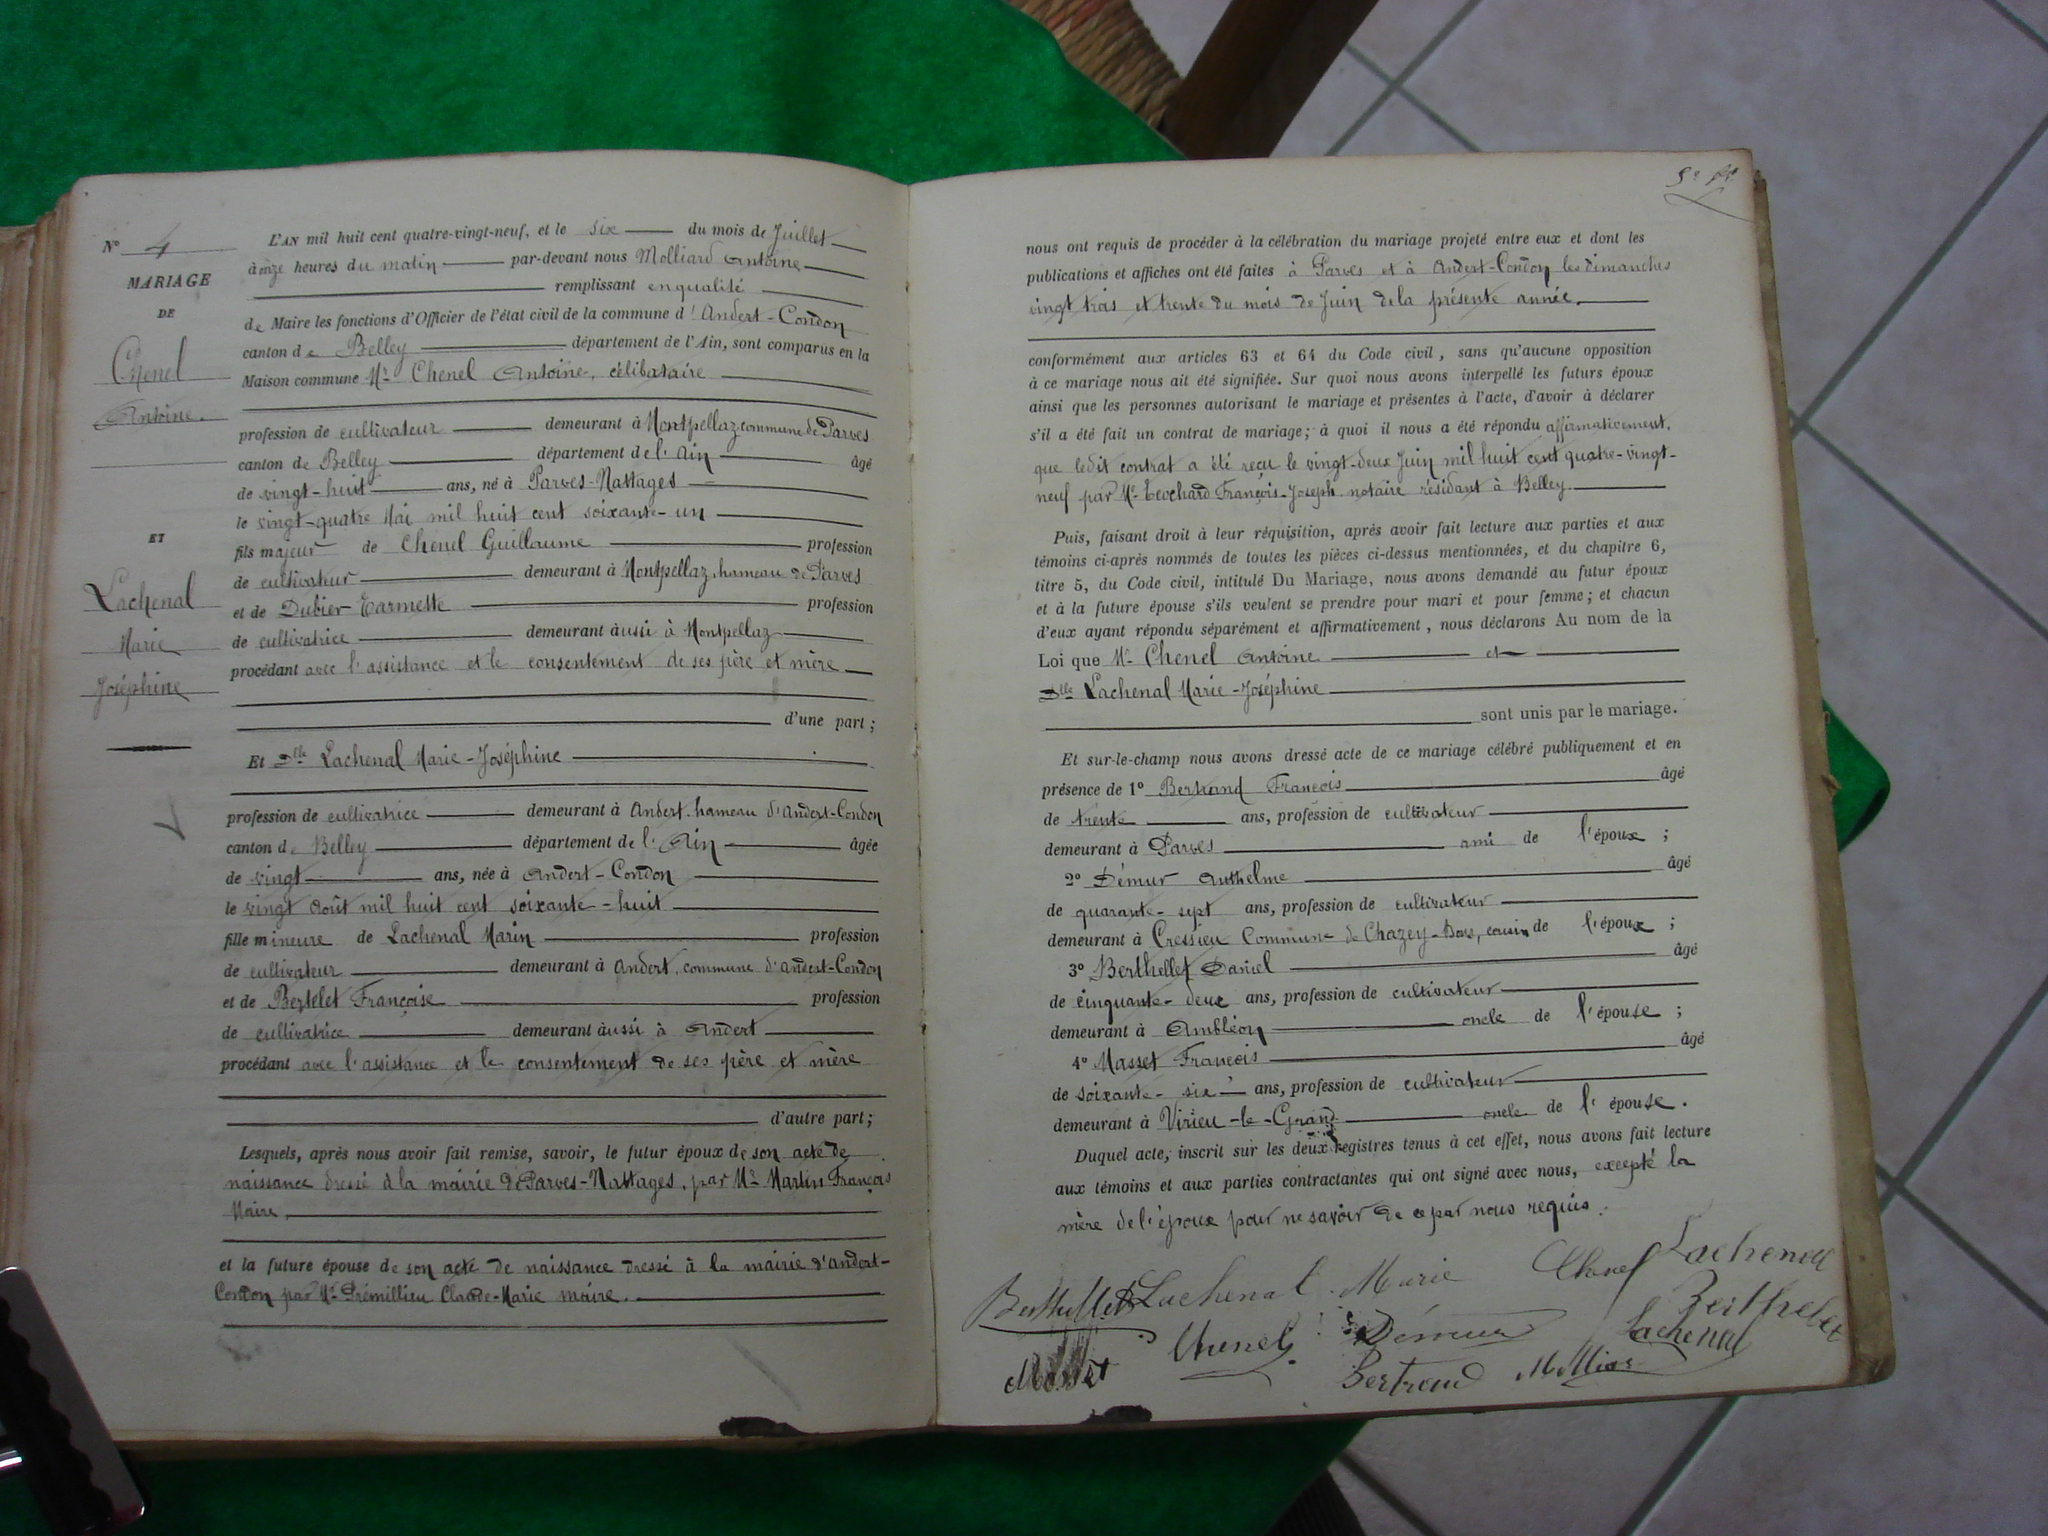 N° 4
MARIAGE
DE
Chenel
Antoine.
ET
Lachenal
Marie
Joséphine
L'AN mil huit cent quatre-vingt-neuf, et le six du mois de Juillet
à onze heures du matin par-devant nous Molliard Antoine
remplissant en qualité
de Maire les fonctions d'Officier de l'état civil de la commune d'Andert-Condon
canton de Belley département de l'Ain, sont comparus en la
Maison commune Mr Chenel Antoine, célibataire
profession de cultivateur demeurant à Montpellaz commune de Parves
canton de Belley département de l'Ain âgé
de vingt-huit ans, né à Parves-Nattages
le vingt-quatre Mai mil huit cent soixante-un
fils majeur de Chenel Guillaume profession
de cultivateur demeurant à Montpellaz, hameau de Parves
et de Dubier profession
de cultivatrice demeurant aussi à Montpellaz
procédant avec l'assistance et le consentement de ses père et mère
d'une part ;
Et Dlle Lachenal Marie-Joséphine
profession de cultivatrice demeurant à Andert, hameau d'Andert-Condon
canton de Belley département de l'Ain âgée
de vingt ans, née à Andert-Condon
le vingt Août mil huit cent soixante-huit
fille mineure de Lachenal Marin profession
de cultivateur demeurant à Andert, commune d'Andert-Condon
et de Bertelet Françoise profession
de cultivatrice demeurant aussi à Andert
procédant avec l'assistance et le consentement de ses père et mère
d'autre part ;
Lesquels, après nous avoir fait remise, savoir, le futur époux de son acte de
naissance dressé à la mairie de Parves-Nattages, par Mr Martin François
Maire
et la future épouse de son acte de naissance dressé à la mairie d'Andert-
Condon par Mr Prémillieu Claude-Marie maire.
nous ont requis de procéder à la célébration du mariage projeté entre eux et dont les
publications et affiches ont été faites à Parves et à Andert-Condon les dimanches
vingt trois et trente du mois de Juin de la présente année.
conformément aux articles 63 et 64 du Code civil, sans qu'aucune opposition
à ce mariage nous ait été signifiée. Sur quoi nous avons interpellé les futurs époux
ainsi que les personnes autorisant le mariage et présentes à l'acte, d'avoir à déclarer
s'il a été fait un contrat de mariage ; à quoi il nous a été répondu affirmativement,
que ledit contrat a été reçu le vingt-deux Juin mil huit cent quatre-vingt-
neuf par Me François-Joseph notaire résidant à Belley
Puis, faisant droit à leur réquisition, après avoir fait lecture aux parties et aux
témoins ci-après nommés de toutes les pièces ci-dessus mentionnées, et du chapitre 6,
titre 5, du Code civil, intitulé Du Mariage, nous avons demandé au futur époux
et à la future épouse s'ils veulent se prendre pour mari et pour femme ; et chacun
d'eux ayant répondu séparément et affirmativement, nous déclarons Au nom de la
Loi que Mr Chenel Antoine et
Dlle Lachenal Marie-Joséphine
sont unis par le mariage.
Et sur-le-champ nous avons dressé acte de ce mariage célébré publiquement et en
présence de 1° Bertrand François âgé
de trente ans, profession de cultivateur
demeurant à Parves ami de l'époux ;
2° Démur Anthelme âgé
de quarante-sept ans, profession de cultivateur
demeurant à Cressieu Commune de Chazey-Bons, cousin de l'époux ;
3° Berthellet Daniel âgé
de cinquante-deux ans, profession de cultivateur
demeurant à Ambléon oncle de l'épouse ;
4° Masset François âgé
de soixante-six ans, profession de cultivateur
demeurant à Virieu-le-Grand oncle de l'épouse.
Duquel acte, inscrit sur les deux registres tenus à cet effet, nous avons fait lecture
aux témoins et aux parties contractantes qui ont signé avec nous, excepté la
mère de l'époux pour ne savoir de ce par nous requis.
Lachenal
Berthellet Lachenal Marie Chenel
Berthelet
Chenel Démur Lachenal
Masset Bertrand Molliar